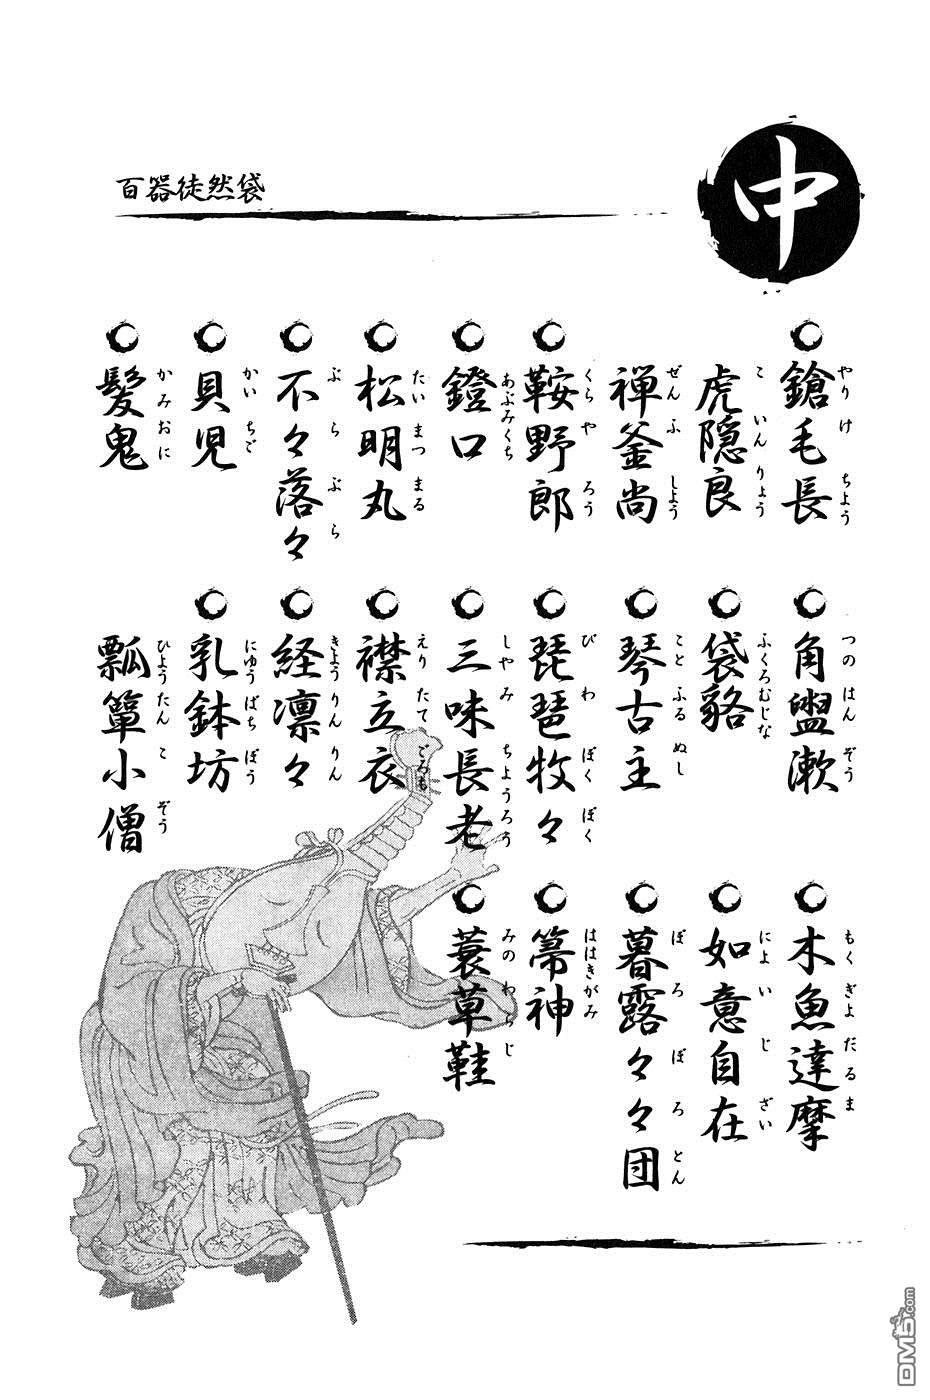 中
百器徒然袋
鎗毛長
やりけちよう
虎隠良
こいんりょう
禅釜尚
ぜんふしよう
鞍野郎
くらやろう
鐙口
あぶみくち
松明丸
たいまつまる
不々落々
ぶらぶら
貝児
かいちご
髪鬼
かみおに
角盥漱
つのはんぞう
袋貉
ふくろむじな
琴古主
ことふるぬし
琵琶牧々
びわぼくぼく
三味長老
しやみちようろう
襟立衣
えりたてごろも
経凛々
きようりんりん
乳鉢坊
にゆうばちぼう
瓢箪小僧
ひようたんこぞう
木魚達摩
もくぎよだるま
如意自在
によいじざい
暮露々々団
ぼろぼろとん
箒神
ははきがみ
蓑草鞋
みのわらじ
DM5.com